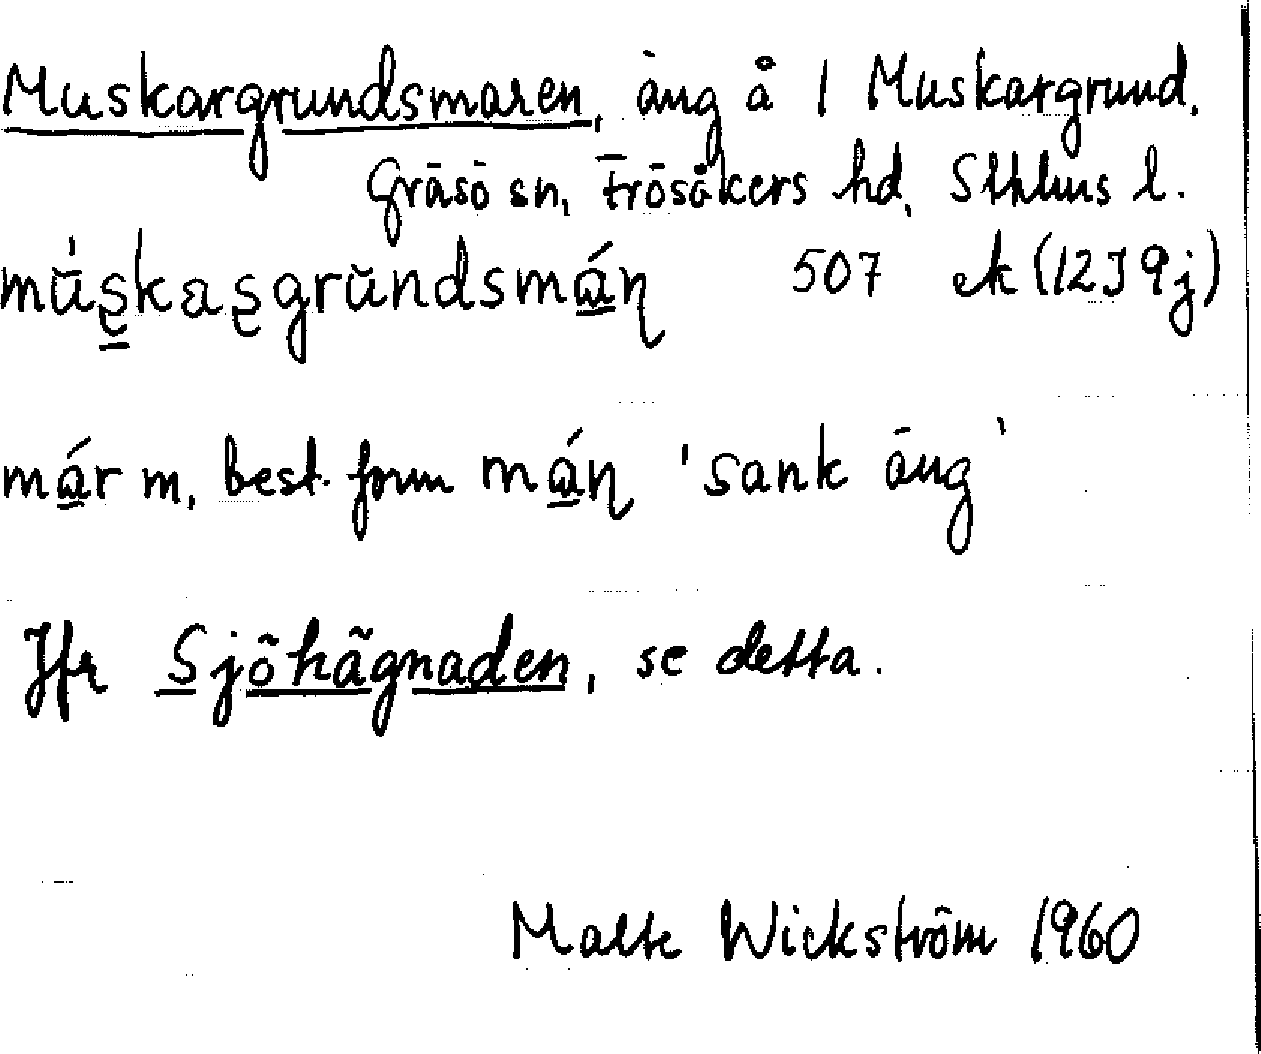 Muskargrundsmaren, äng å 1 Muskargrund,
Gräsö sn, Frösåkers hd, Sthlms l.
507 ek (12J 9j)
m. best. form 'sank äng'
Jfr Sjöhägnaden, se detta.
Malte Wickström 1960